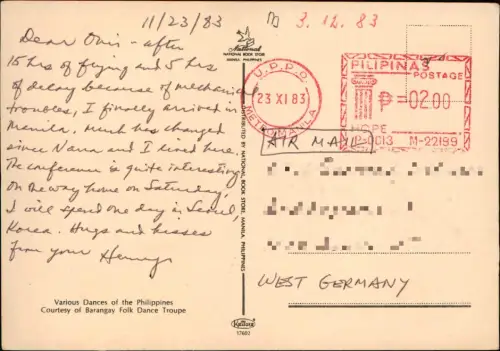 11/23/83
3. 12. 83
Dear Omi - after
15 hrs of flying and 5 hrs
of delay because of mechanical
troubles, I finally arrived in
Manila. Much has changed
since Nana and I lived here.
The conference is quite interesting
on the way home on Saturday,
I will spend one day in Seoul,
Korea. Hugs and kisses
from your Henry
Various Dances of the Philippines
Courtesy of Barangay Folk Dance Troupe
National
NATIONAL BOOK STORE
MANILA, PHILIPPINES
DISTRIBUTED BY NATIONAL BOOK STORE, MANILA PHILIPPINES
17602
U.P.P.O.
23 XI 83
METRO MANILA
PILIPINAS
POSTAGE
₱=02.00
HOPE
P-0013 M-22199
AIR MAIL
WEST GERMANY